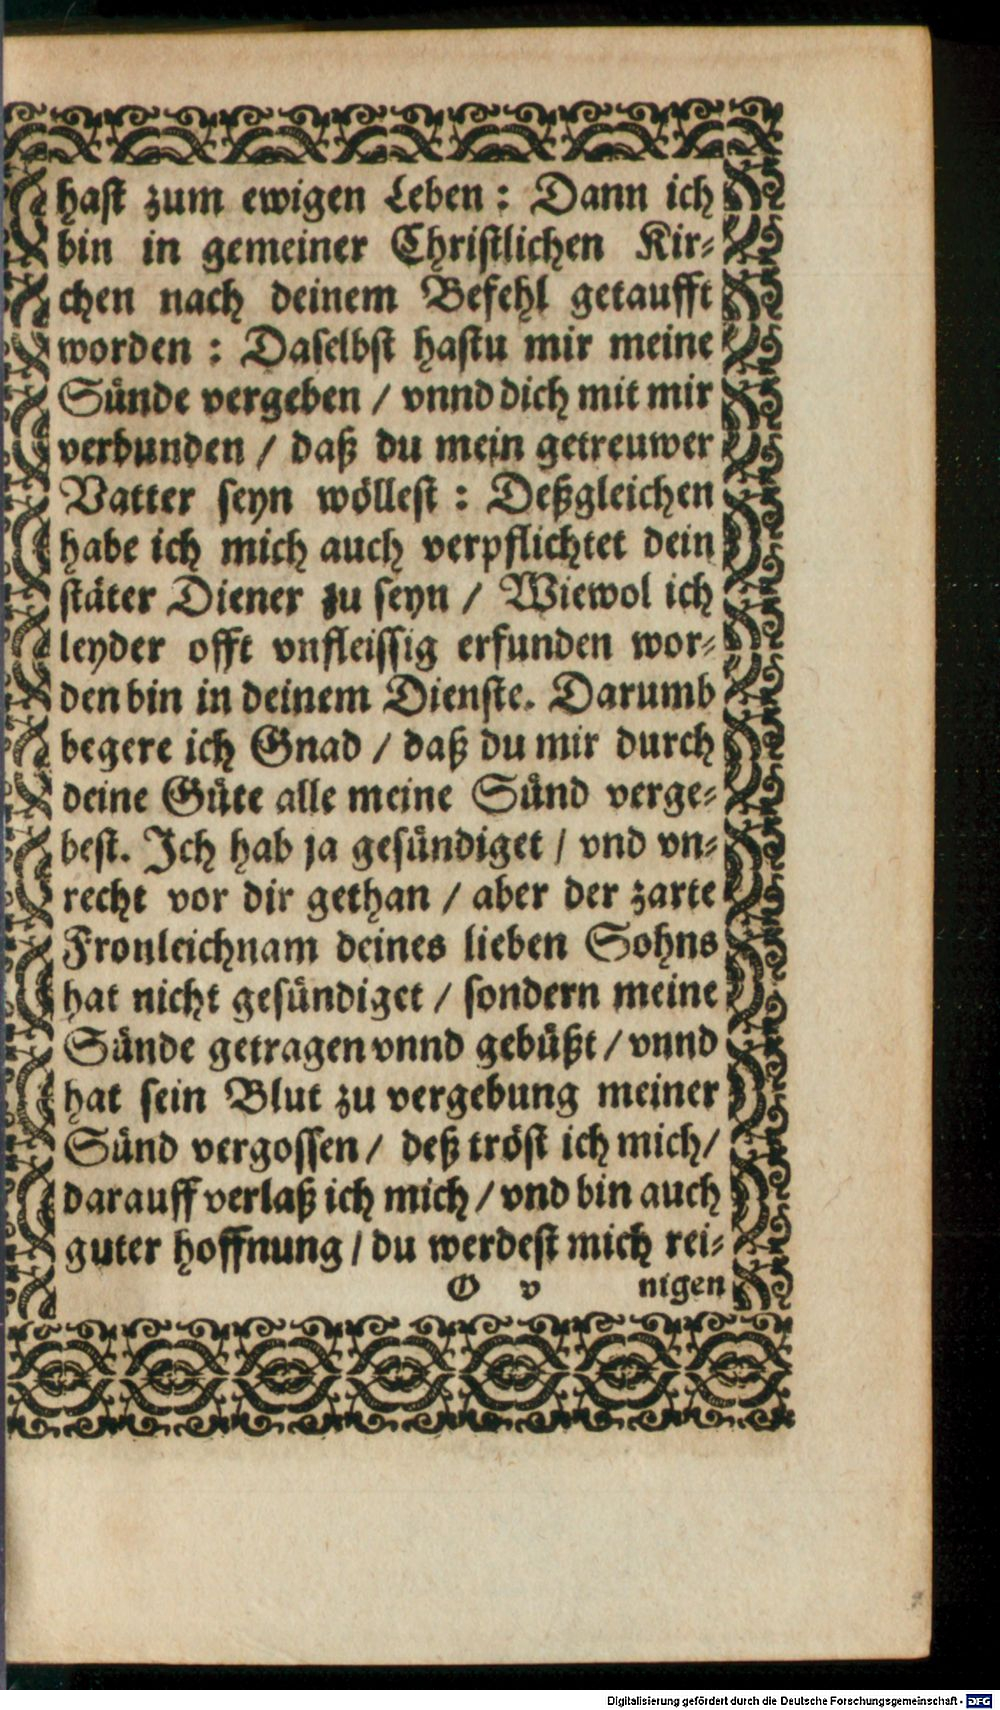 hast zum ewigen Leben : Dann ich
bin in gemeiner Christlichen Kir-
chen nach deinem Befehl getaufft
worden : Daselbst hastu mir meine
Sünde vergeben / vnnd dich mit mir
verbunden / daß du mein getreuwer
Vatter seyn wöllest : Deßgleichen
habe ich mich auch verpflichtet dein
stäter Diener zu seyn / Wiewol ich
leyder offt vnfleissig erfunden wor-
den bin in deinem Dienste. Darumb
begere ich Gnad / daß du mir durch
deine Güte alle meine Sünd verge-
best. Ich hab ja gesündiget / vnd vn-
recht vor dir gethan / aber der zarte
Fronleichnam deines lieben Sohns
hat nicht gesündiget / sondern meine
Sünde getragen vnnd gebüßt / vnnd
hat sein Blut zu vergebung meiner
Sünd vergossen / deß tröst ich mich /
darauff verlaß ich mich / vnd bin auch
guter hoffnung / du werdest mich rei-
O v nigen
Digitalisierung gefördert durch die Deutsche Forschungsgemeinschaft - DFG